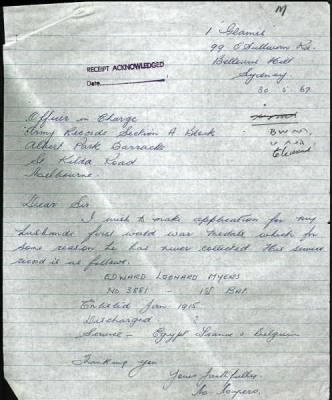 1 Glamis
99 O'Sullivan Rd.
Bellevue Hill
Sydney
30. 5. 67
RECEIPT ACKNOWLEDGED
Date
Officer in Charge
Army Records Section A Block
Albert Park Barracks
St Kilda Road
Melbourne.
BWM
VM
Claimed
Dear Sir.
I wish to make application for my
husbands first world war medals which for
some reason he has never collected. His service
record is as follows.
EDWARD LEONARD MYERS
No. 3881 - 1st BAT.
Enlisted Jan. 1915.
Discharged "
Service - Egypt France & Belguim
Thanking you
Yours Faithfully.